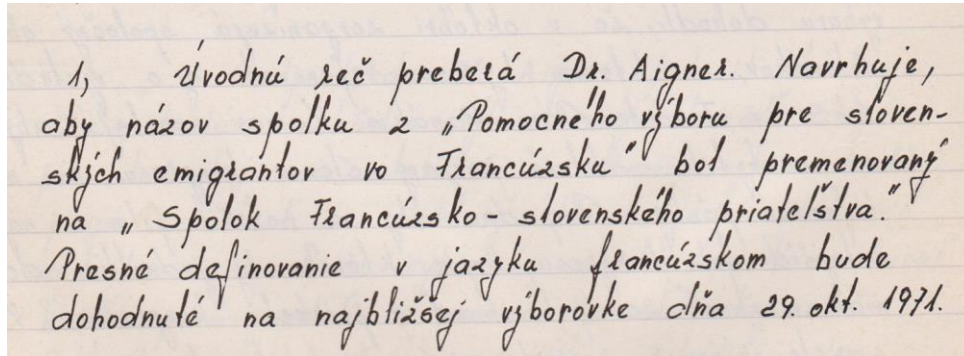 1, Úvodnú reč preberá Dr. Aigner. Navrhuje,
aby názov spolku z „Pomocného výboru pre sloven-
ských emigrantov vo Francúzsku" bol premenovaný
na „Spolok Francúzsko-slovenského priateľstva."
Presné definovanie v jazyku francúzskom bude
dohodnuté na najbližšej výborovke dňa 29. okt. 1971.